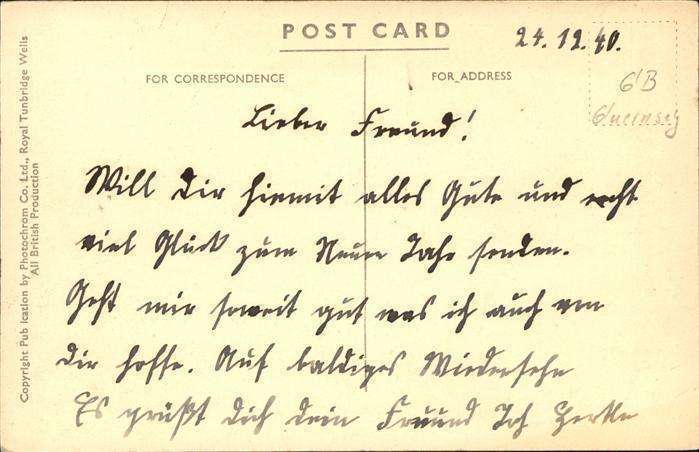 POST CARD
24.12.40.
FOR CORRESPONDENCE
FOR ADDRESS
GB
Guernsey
Lieber Freund!
Will Dir hiemit alles Gute und recht
viel Glück zum Neuen Jahr senden.
Geht mir soweit gut was ich auch von
Dir hoffe. Auf baldiges Wiedersehn
Es grüßt Dich Dein Freund
Copyright Pub ication by Photochrom Co. Ltd., Royal Tunbridge Wells
All British Production